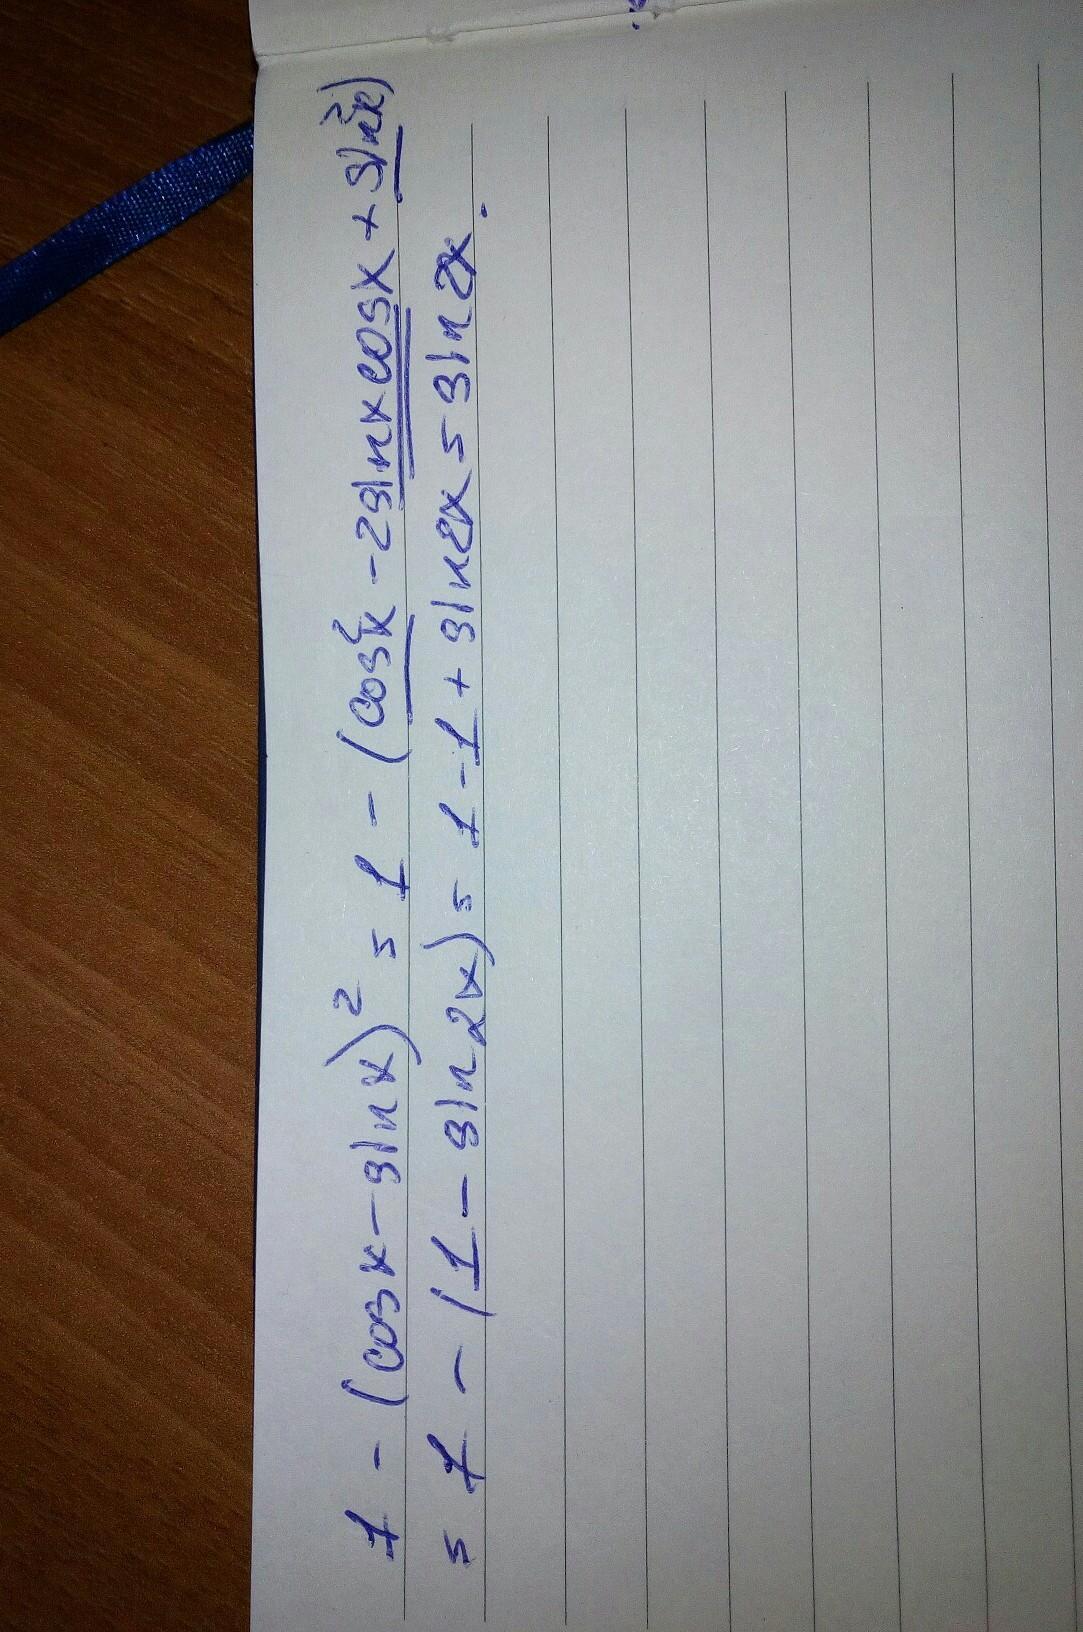 1 - (cosx - sinx)² = 1 - (cos²x - 2sinxcosx + sin²x)
= 1 - (1 - sin2x) = 1 - 1 + sin2x = sin2x.